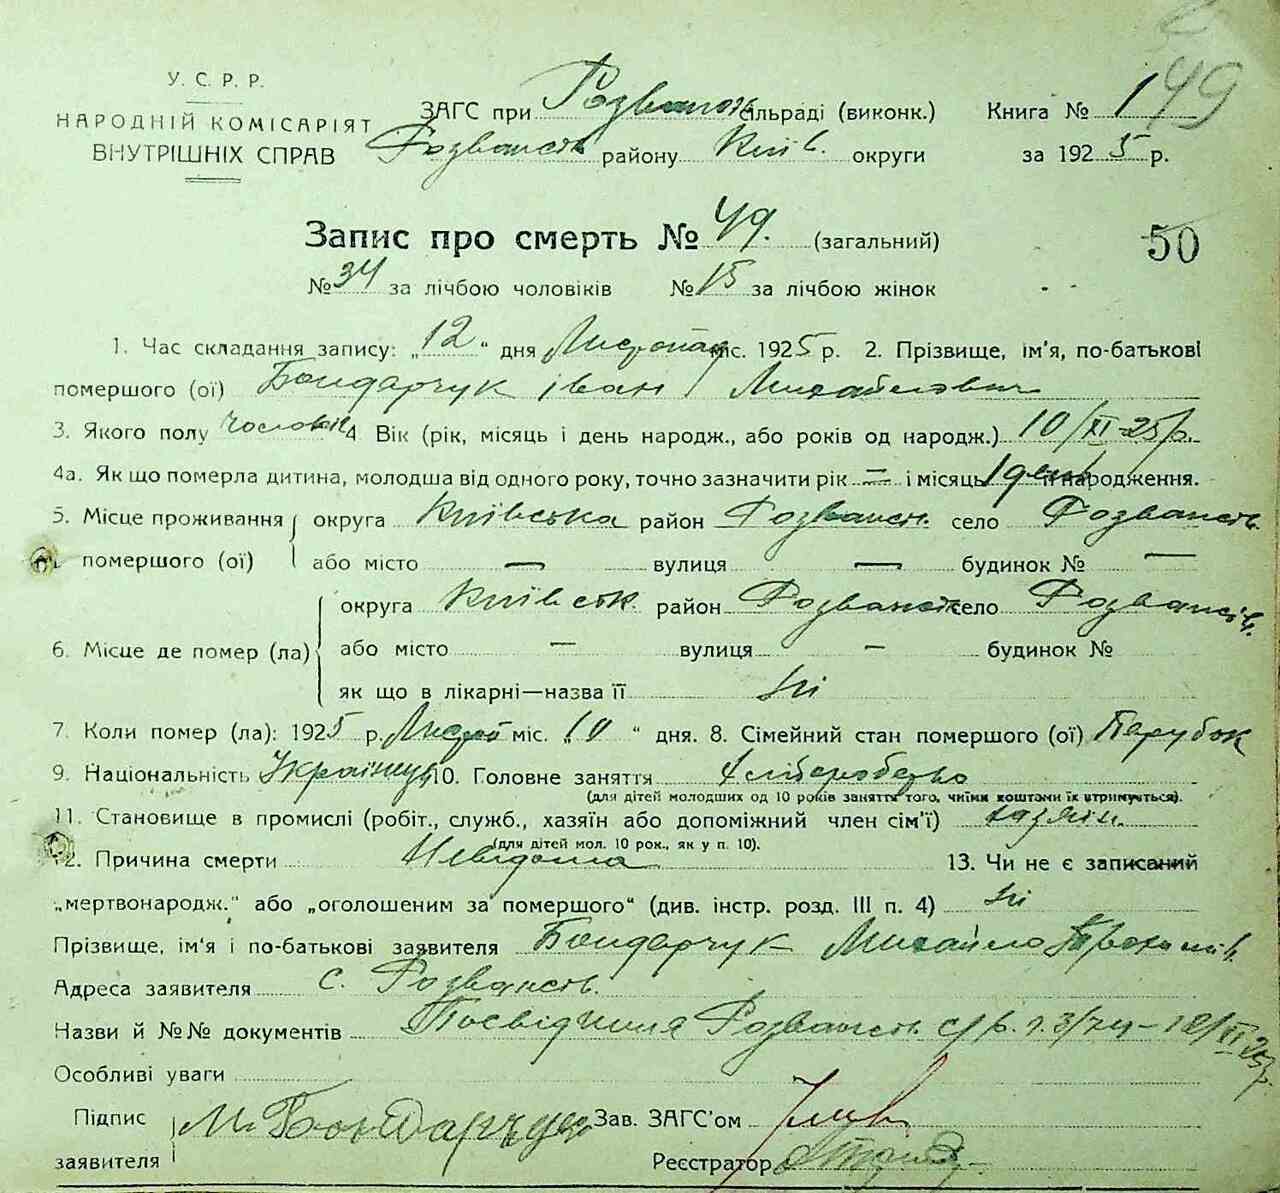 49
У. С. Р. Р.
НАРОДНІЙ КОМІСАРІЯТ
ВНУТРІШНІХ СПРАВ
ЗАГС при Розваж сільраді (виконк.)
району Київ. округи
Книга № 1
за 1925 р.
Запис про смерть № 49. (загальний)
50
№ 34 за лічбою чоловіків № 15 за лічбою жінок
1. Час складання запису: „12" дня Листопад міс. 1925 р. 2. Прізвище, ім'я, по-батькові
помершого (ої) Бондарчук Іван Михайлович
3. Якого полу Чоловік 4. Вік (рік, місяць і день народж., або років од народж.) 10/XI-25р.
4а. Як що померла дитина, молодша від одного року, точно зазначити рік — і місяць 1 день її народження.
5. Місце проживання округа Київська район село
помершого (ої) або місто — вулиця — будинок № —
округа Київськ. район село
6. Місце де помер (ла) або місто — вулиця — будинок №
як що в лікарні—назва її Ні
7. Коли помер (ла): 1925 р. Листоп міс. „10" дня. 8. Сімейний стан помершого (ої) Парубок
9. Національність Українец 10. Головне заняття Хліборобство
(для дітей молодших од 10 років заняття того, чиїми коштами їх утримується).
11. Становище в промислі (робіт., служб., хазяїн або допоміжний член сім'ї) хазяїн.
(для дітей мол. 10 рок., як у п. 10).
12. Причина смерти Невідома 13. Чи не є записаний
„мертвонародж." або „оголошеним за помершого" (див. інстр. розд. III п. 4) Ні
Прізвище, ім'я і по-батькові заявителя Бондарчук Михайло
Адреса заявителя с.
Назви й №№ документів Посвідчення
Особливі уваги
Підпис М. Бондарчук Зав. ЗАГС'ом
заявителя Реєстратор